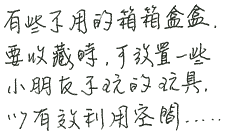 有些不用的箱箱盒盒.
要收藏時,可放置一些
小朋友不玩的玩具,
以有效利用空間.....